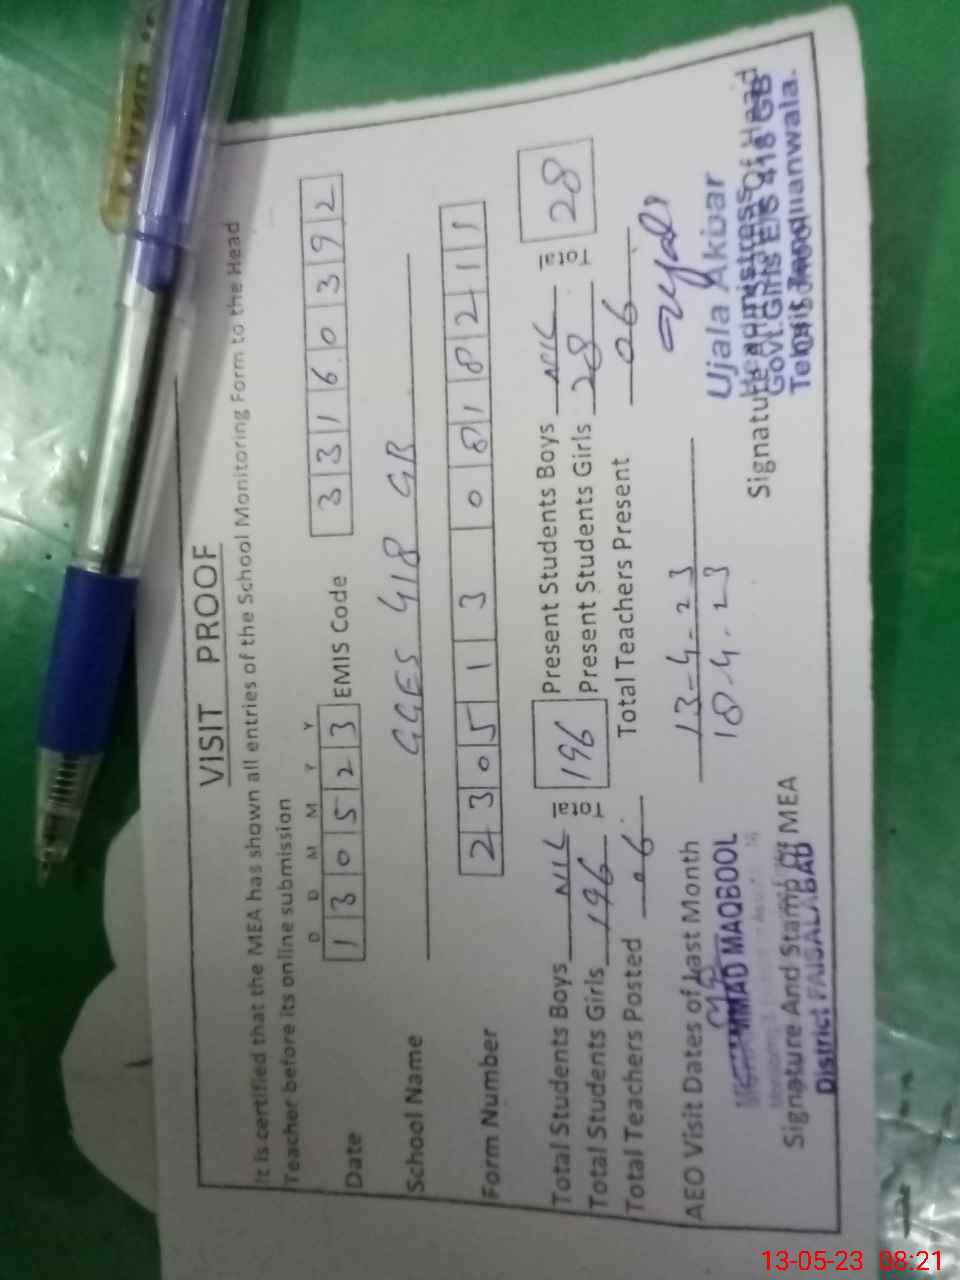 VISIT PROOF
It is certified that the MEA has shown all entries of the School Monitoring Form to the Head
Teacher before its online submission
D D M M Y Y
Date 1 3 0 5 2 3 EMIS Code 3 3 1 6 0 3 9 2
School Name GGES 418 GB
Form Number 2 3 0 5 1 3 0 8 1 8 2 1 1
Total Students Boys NIL Total 196 Present Students Boys NIL Total 28
Total Students Girls 196 Present Students Girls 28
Total Teachers Posted 06 Total Teachers Present 06
AEO Visit Dates of Last Month 13-4-23
18.4.23
MUHAMMAD MAQBOOL
Ujala Akbar
Signature And Stamp Of MEA
Signature and Stamp Of Head
District FAISALABAD
Headmistress
Govt. Girls E/S 418 GB
Tehsil Tandlianwala.
13-05-23 08:21